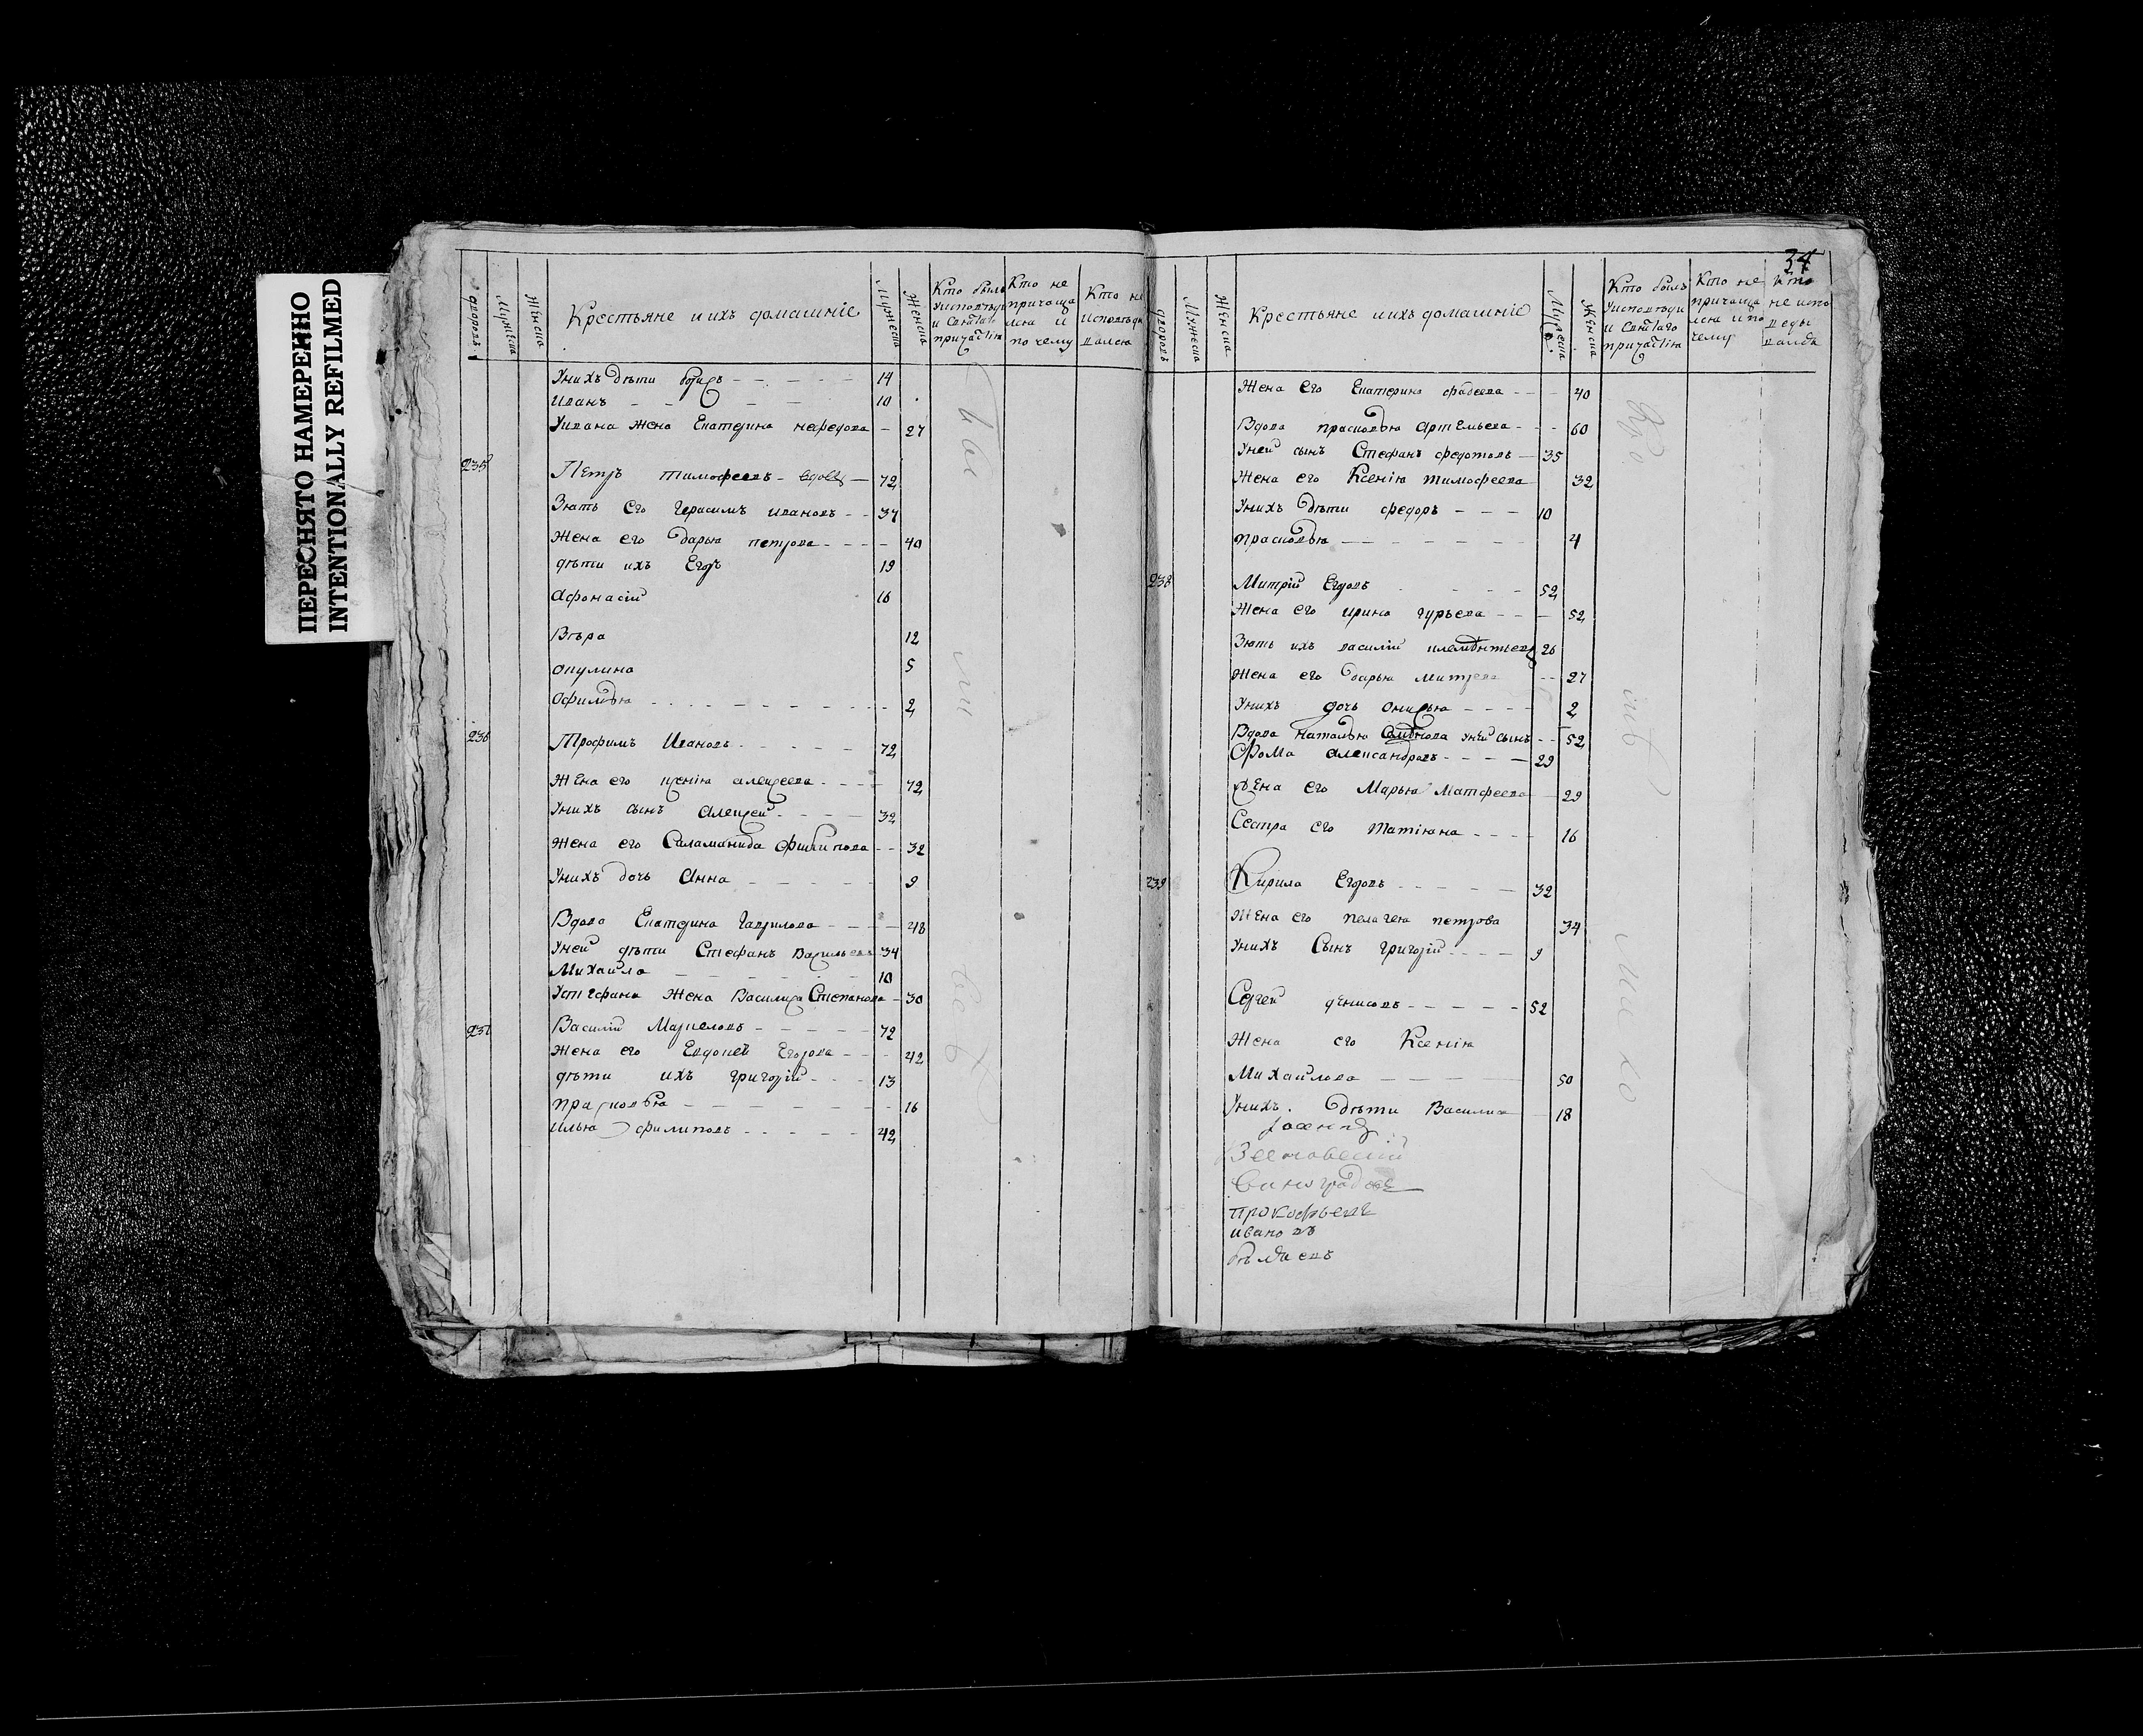 ПЕРЕСНЯТО НАМЕРЕННО
INTENTIONALLY REFILMED
дворовъ
Мужеска
Женска
Крестьяне и ихъ домашніе
Мужеска
Женска
Кто былъ
у исповѣди
и Святаго
причастїя
Кто не
причаща
лся и
по чему
Кто не
исповѣди
вался
У нихъ дѣти борисъ 14
Иванъ 10
У ивана жена Екатерина 27
235 Петръ тимофеевъ вдовъ 72
Зять его герасимъ ивановъ 37
Жена его дарья петрова 40
дѣти ихъ Егоръ 19
Афонасій 16
Вѣра 12
Окулина 5
Офимья 2
236 Трофимъ Ивановъ 72
Жена его ксенія алексеева 72
У нихъ сынъ Алексей 32
Жена его Саламанида филипова 32
У нихъ дочь Анна 9
Вдова Екатерина Гаврилова 48
У ней дѣти Стефанъ Васильевъ 34
Михайла 10
У стефана жена Василиса Степанова 30
237 Василій Маркеловъ 72
Жена его Евдокея Егорова 42
дѣти ихъ григорій 13
прасковья 16
Илья филиповъ 42
34
дворовъ
Мужеска
Женска
Крестьяне и ихъ домашніе
Женска
Кто былъ
у исповѣди
и Святаго
причастїя
Кто не
причаща
лся и по
чему
Кто
не испо
веды
вался
Жена его Екатерина фадеева 40
Вдова прасковья Артемьева 60
У ней сынъ Стефанъ федотовъ 35
Жена его Ксенія тимофеева 32
У нихъ дѣти федоръ 10
прасковья 4
238 Митрій Егоровъ 52
Жена его ирина гурьева 52
Зять ихъ василій климѣнтьевъ 26
Жена его дарья митрева 27
У нихъ дочь 2
Вдова наталья у ней сынъ 52
Фома александровъ 29
Жена его Марья Матфеева 29
Сестра его татіяна 16
239 Кирила Егоровъ 32
Жена его пелагея петрова 34
У нихъ Сынъ григорій 9
Сергей денисовъ 52
Жена его Ксенія
Михайлова 50
У нихъ дѣти Василиса 18
прокофьевъ
ивановъ